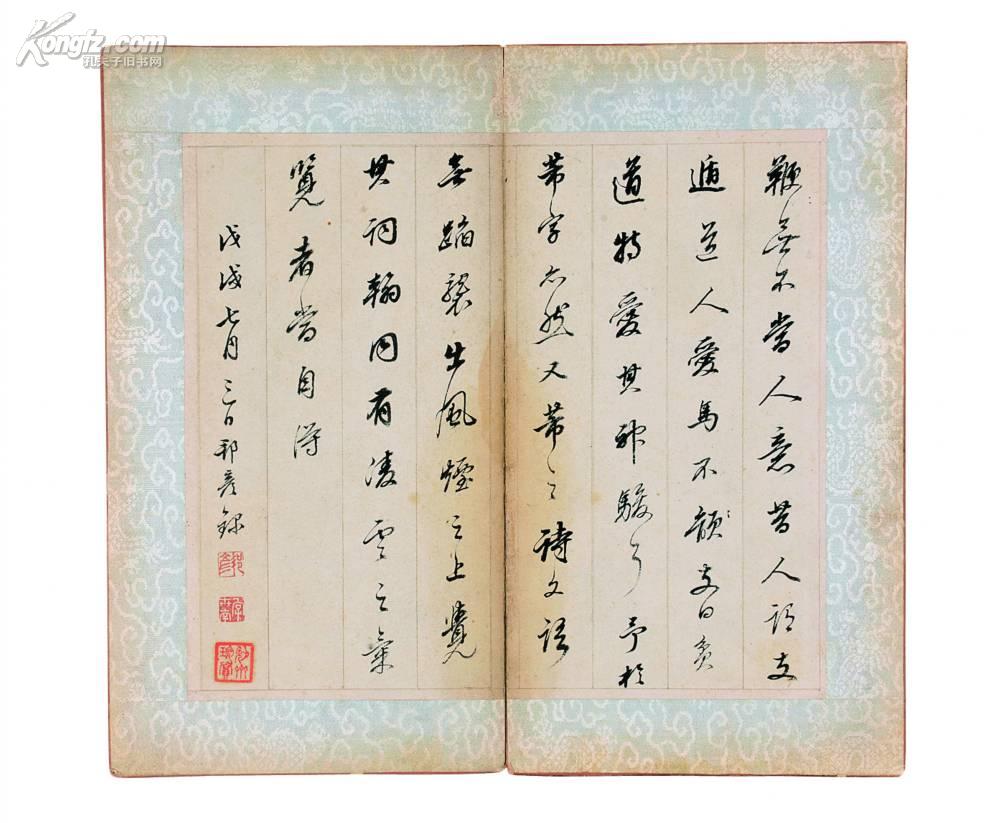 Kongfz.com
孔夫子旧书网
鞭無不當人意昔人謂支
遁道人愛馬不韻支曰貧
道特愛其神駿耳予於
芾字亦然又芾之詩文語
無蹈襲出風煙之上覺
其詞翰同有凌雲之氣
覽者當自得
戊戌七月三日邦彥錄